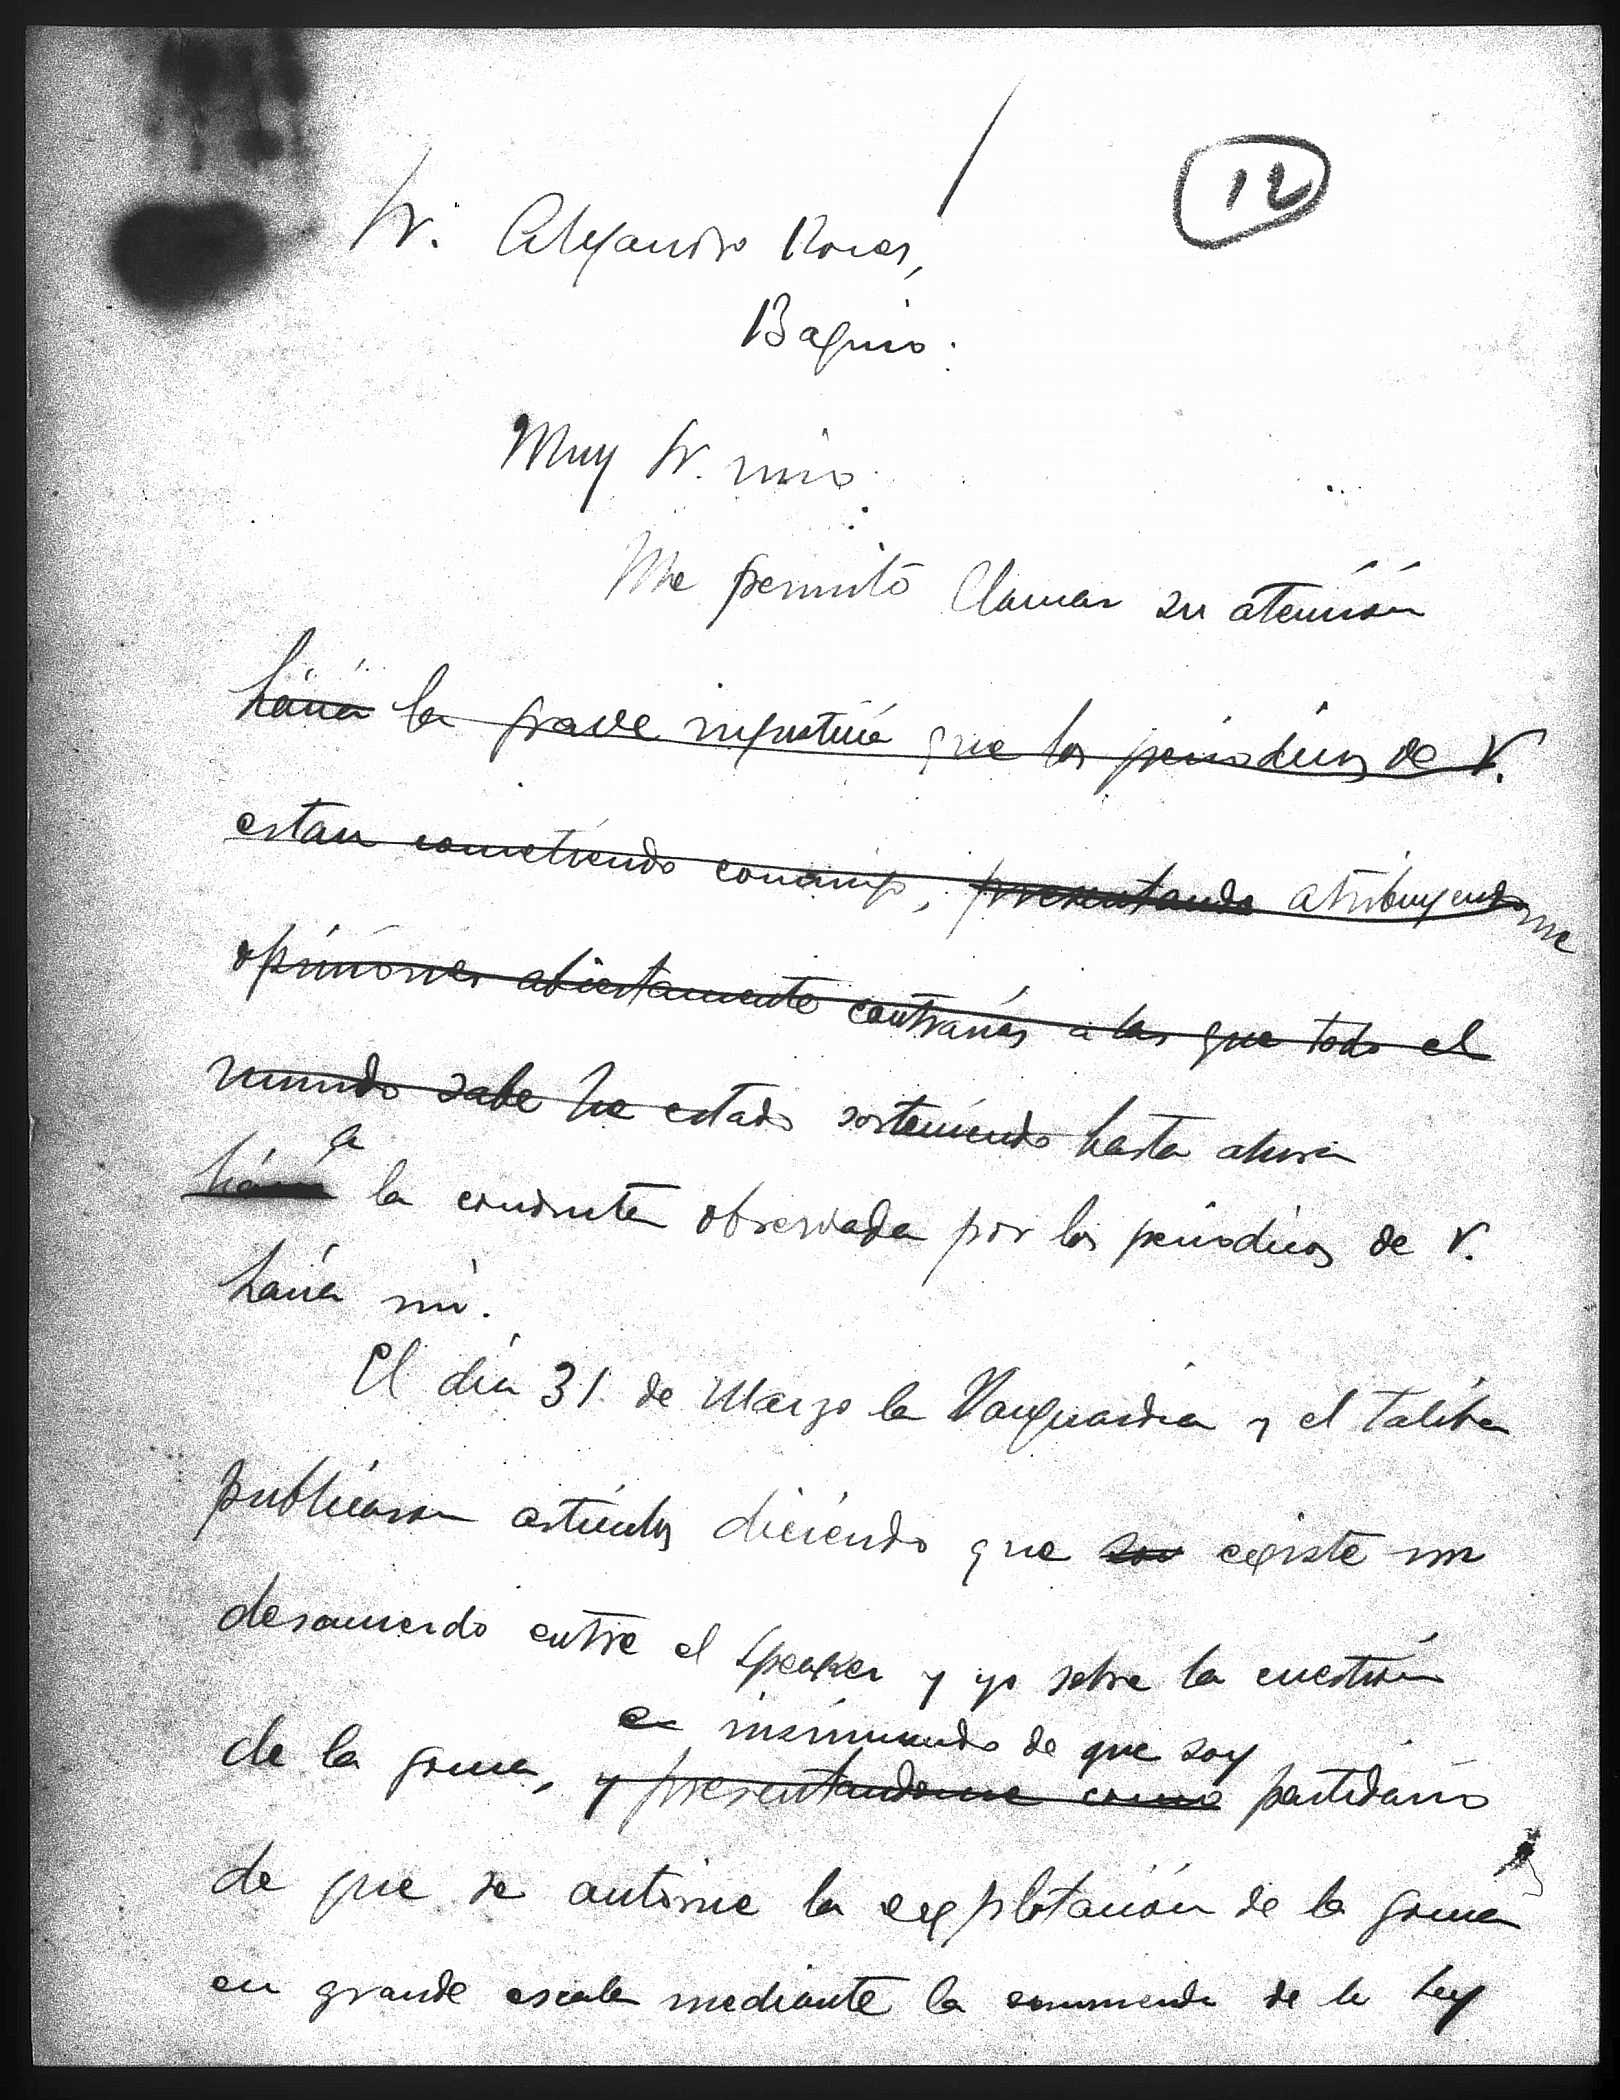 12
Sr. Alejandro Roces,
Baguio.
Muy Sr. mio:
Me permito llamar su atención
hácia la grave injusticia que los periodicos de V.
estan cometiendo conmigo, presentando atribuyendome
opiniones abiertamente contrarias a las que todo el
mundo sabe he estado sosteniendo hasta ahora
a
hácia la conducta observada por los periodicos de V.
hácia mi.
El dia 31 de Marzo la Vanguardia y el Taliba
publicaron articulos diciendo que existe un
desacuerdo entre el Speaker y yo sobre la cuestión
insinuando de que soy
de la goma, y presentandome como partidario
de que se autorice la explotación de la goma
en grande escala mediante la enmienda de la ley